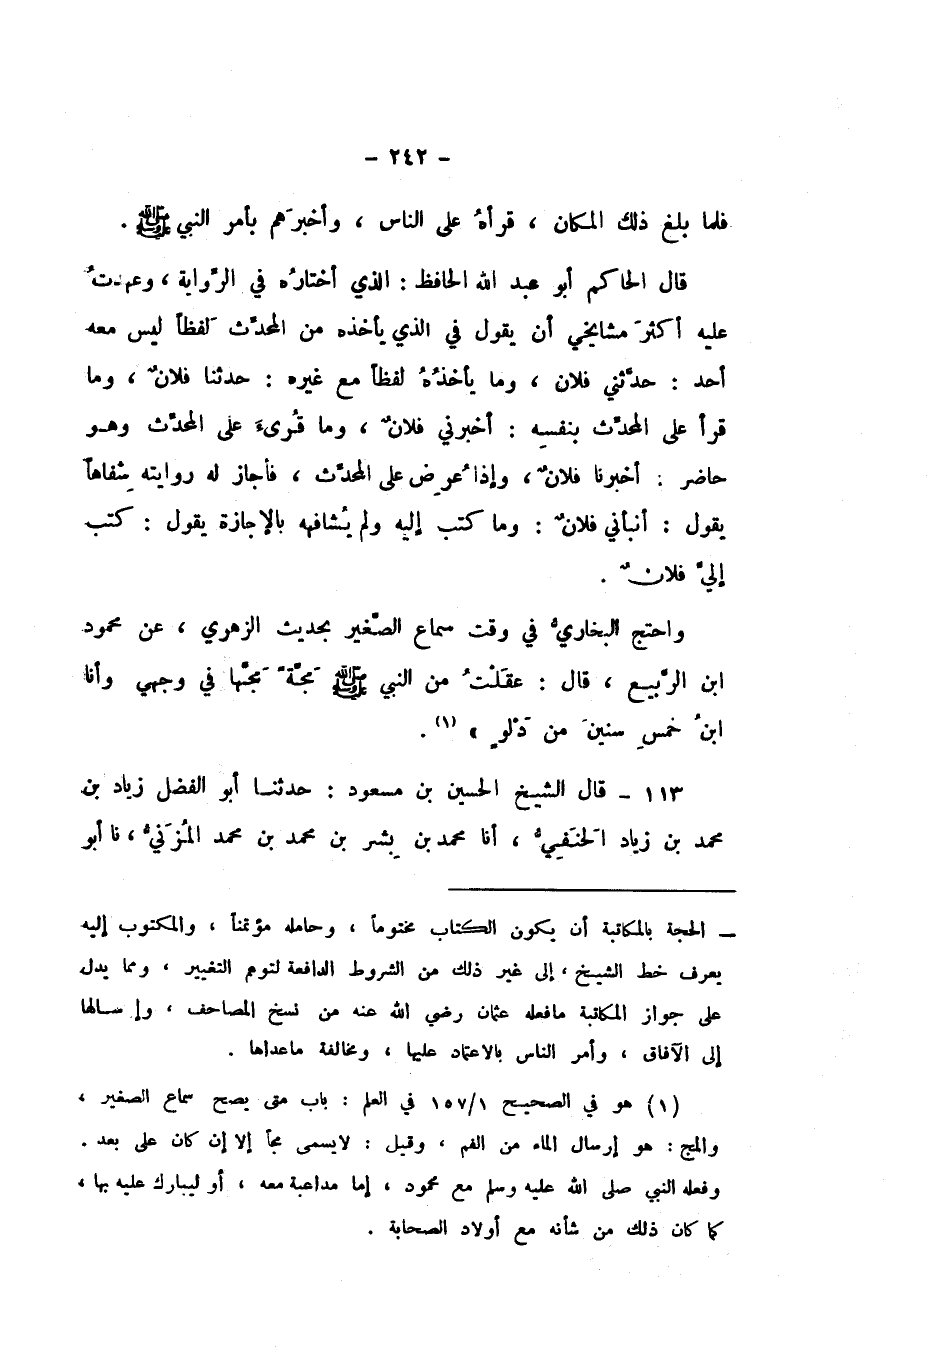 - ٢٤٢ -
فلما بلغ ذلك المكان ، قرأهُ على الناس ، وأخبرَهم بأمر النبي ﷺ .
قال الحاكم أبو عبد الله الحافظ : الذي أختارُه في الرَّواية ، وعهدتُ
عليه أكثرَ مشايخي أن يقول في الذي يأخذه من المحدَّث لَفظاً ليس معه
أحد : حدَّثني فلان ، وما يأخذُهُ لفظاً مع غيره : حدثنا فلانٌ ، وما
قرأ على المحدَّث بنفسِه : أخبرني فلانٌ ، وما قُرىءَ على المحدَّث وهو
حاضر : أخبرنا فلانٌ ، وإذا عُوِض على المحدَّث ، فأجاز له روايته شِفاهاً
يقول : أنبأني فلانٌ : وما كتب إليه ولم يُشافهه بالإجازة يقول : كتب
إليَّ فلانٌ .
واحتج البخاريُّ في وقت سماع الصَّغير بحديث الزهري ، عن محمود
ابن الرَّبيع ، قال : عقَلْتُ من النبي ﷺ مَجَّةً مَجَّها في وجهي وأنا
ابنُ خمسِ سنينَ من دَلْوٍ » (١) .
١١٣ - قال الشيخ الحسين بن مسعود : حدثنا أبو الفضل زياد بن
محمد بن زياد الحَنَفِيُّ ، أنا محمد بن بِشر بن محمد بن محمد المُزَنيُّ ، نا أبو
ــ الحجة بالمكاتبة أن يكون الكتاب مختوماً ، وحامله مؤتمناً ، والمكتوب إليه
يعرف خط الشيخ ، إلى غير ذلك من الشروط الدافعة لتوم التغيير ، ومما يدل
على جواز المكاتبة مافعله عثمان رضي الله عنه من نسخ المصاحف ، وإرسالها
إلى الآفاق ، وأمر الناس بالاعتماد عليها ، ومخالفة ماعداها .
(١) هو في الصحيح ١٥٧/١ في العلم : باب متى يصح سماع الصغير ،
والمج : هو إرسال الماء من الفم ، وقيل : لايسمى مجاً إلا إن كان على بعد .
وفعله النبي صلى الله عليه وسلم مع محمود ، إما مداعبة معه ، أو ليبارك عليه بها ،
كما كان ذلك من شأنه مع أولاد الصحابة .